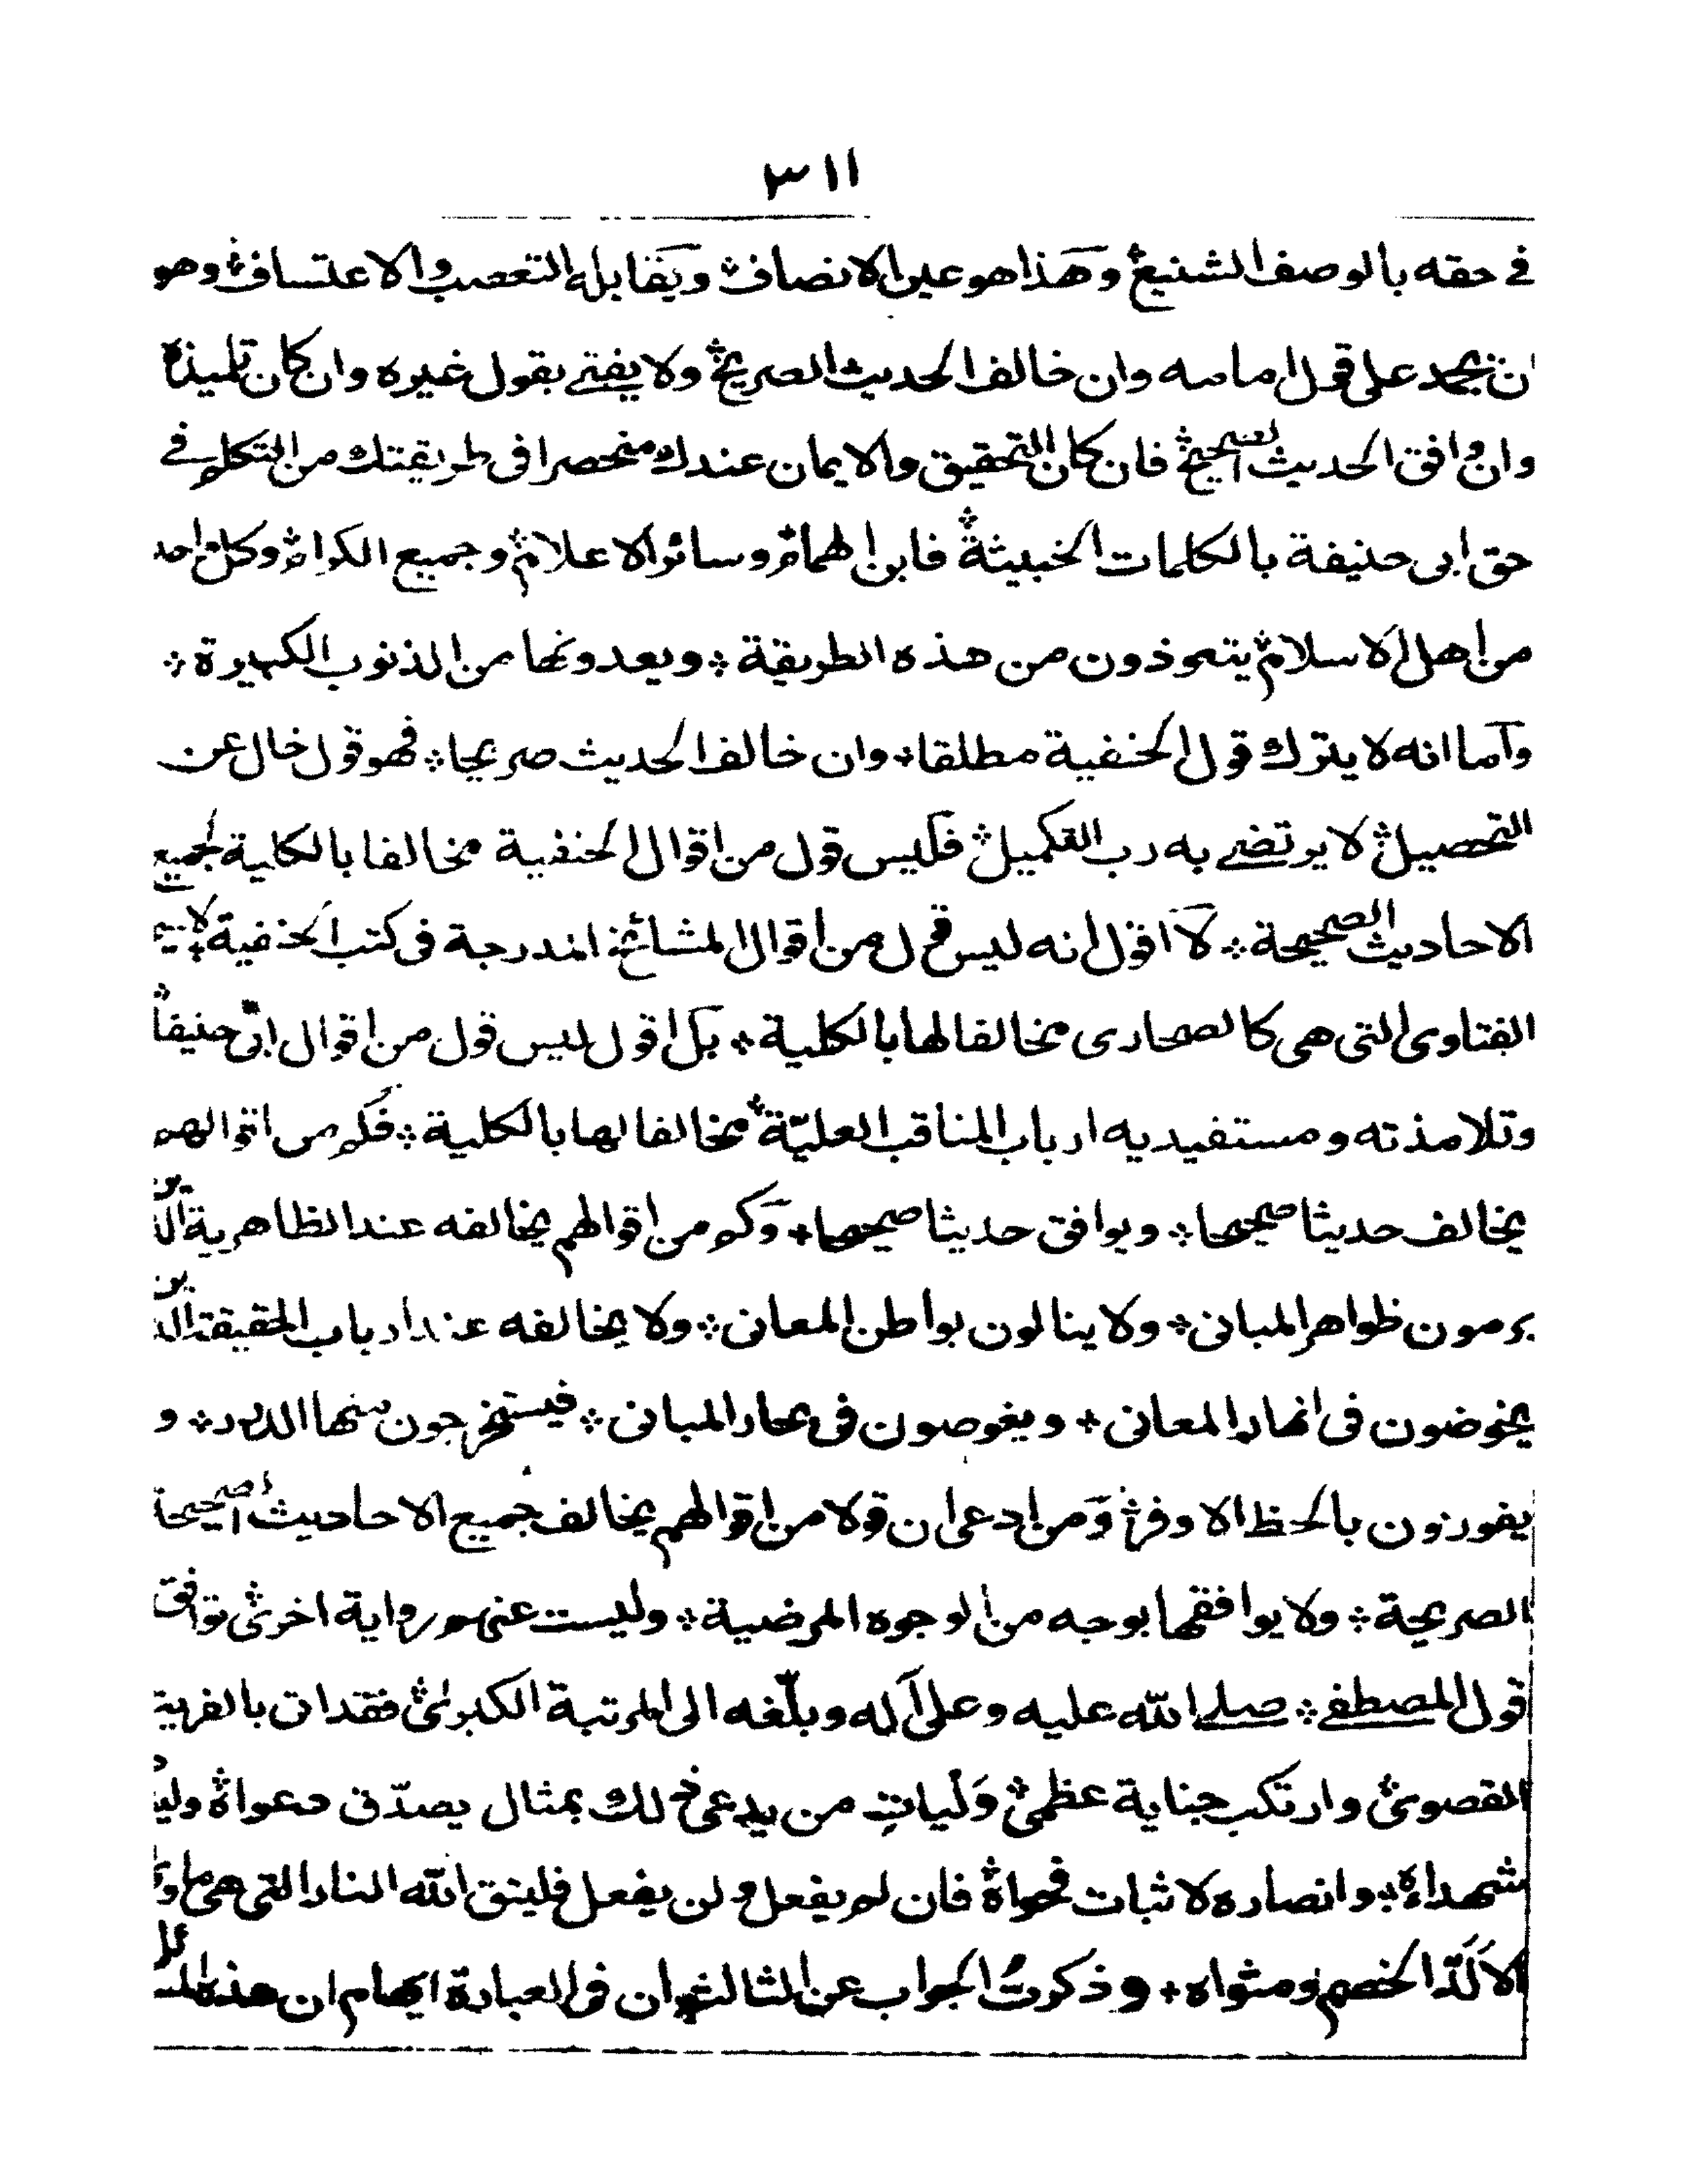 ٣١١
في حقه بالوصف الشنيع ؞ وهذا هو عين الانصاف ؞ ويقابله التعصب والاعتساف ؞ وهو
ان يجمد على قول امامه وان خالف الحديث الصريح ؞ ولا يفتي بقول غيره وان كان تلميذه
وان وافق الحديث الصحيح ؞ فان كان التحقيق والايمان عندك منحصرا في طريقتك من التكلم في
حق ابي حنيفة بالكلمات الخبيثة ؞ فابن الهمام ؞ وسائر الاعلام ؞ وجميع الكرام ؞ وكل واحد
من اهل الاسلام ؞ يتعوذون من هذه الطريقة ؞ ويعدونها من الذنوب الكبيرة ؞
وآما انه لا يترك قول الحنفية مطلقا ؞ وان خالف الحديث صريحا ؞ فهو قول خال عن
التحصيل ؞ لا يرتضي به رب التكميل ؞ فليس قول من اقوال الحنفية مخالفا بالكلية لجميع
الاحاديث الصحيحة ؞ لا اقول انه ليس قول من اقوال المشائخ المندرجة في كتب الحنفية ؞ لا سيما
الفتاوى التي هي كالصحارى مخالفا لها بالكلية ؞ بل اقول ليس قول من اقوال ابي حنيفة ؞
وتلامذته ومستفيديه ارباب المناقب العليّة ؞ مخالفا لها بالكلية ؞ فكم من اقوالهم
يخالف حديثا صحيحا ؞ ويوافق حديثا صحيحا ؞ وكم من اقوالهم يخالفه عند الظاهرية الذين
يرمون ظواهر المباني ؞ ولا ينالون بواطن المعاني ؞ ولا يخالفه عند ارباب الحقيقة الذين
يخوضون في انهار المعاني ؞ ويغوصون في بحار المباني ؞ فيستخرجون منها الدرر ؞ و
يفوزون بالحظ الاوفر ؞ ومن ادعى ان قولا من اقوالهم يخالف جميع الاحاديث الصحيحة
الصريحة ؞ ولا يوافقها بوجه من الوجوه المرضية ؞ وليست عنهم رواية اخرى ؞ توافق
قول المصطفى ؞ صلى الله عليه وعلى آله وبلّغه الى المرتبة الكبرى ؞ فقد اتى بالفرية
القصوى ؞ وارتكب جناية عظمى ؞ وليات من يدعي ذلك بمثال يصدّق دعواه ؞
شهداءه ؞ وانصاره لاثبات فحواه ؞ فان لم يفعل ولن يفعل فليتق الله النار التي هي ماوى
الالدّ الخصم ومثواه ؞ وذكرتُ الجواب عن الثالث بان في العبارة ايهام ان هذه